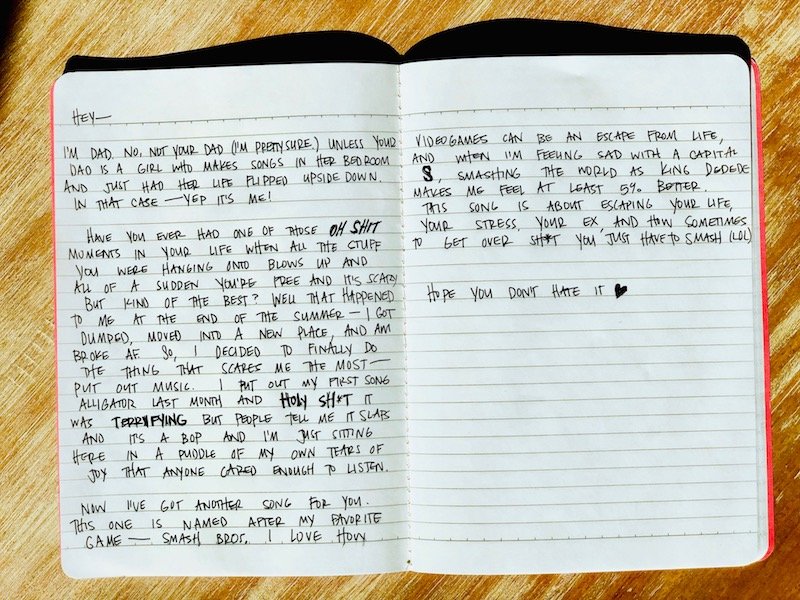 HEY—
I'M DAD. NO, NOT YOUR DAD (I'M PRETTY SURE.) UNLESS YOUR
DAD IS A GIRL WHO MAKES SONGS IN HER BEDROOM
AND JUST HAD HER LIFE FLIPPED UPSIDE DOWN.
IN THAT CASE — YEP IT'S ME!
HAVE YOU EVER HAD ONE OF THOSE OH SHIT
MOMENTS IN YOUR LIFE WHEN ALL THE STUFF
YOU WERE HANGING ONTO BLOWS UP AND
ALL OF A SUDDEN YOU'RE FREE AND IT'S SCARY
BUT KIND OF THE BEST? WELL THAT HAPPENED
TO ME AT THE END OF THE SUMMER — I GOT
DUMPED, MOVED INTO A NEW PLACE, AND AM
BROKE AF. SO, I DECIDED TO FINALLY DO
THE THING THAT SCARES ME THE MOST —
PUT OUT MUSIC. I PUT OUT MY FIRST SONG
ALLIGATOR LAST MONTH AND HOLY SH*T IT
WAS TERRIFYING BUT PEOPLE TELL ME IT SLAPS
AND IT'S A BOP AND I'M JUST SITTING
HERE IN A PUDDLE OF MY OWN TEARS OF
JOY THAT ANYONE CARED ENOUGH TO LISTEN.
NOW I'VE GOT ANOTHER SONG FOR YOU.
THIS ONE IS NAMED AFTER MY FAVORITE
GAME — SMASH BROS. I LOVE HOW
VIDEOGAMES CAN BE AN ESCAPE FROM LIFE,
AND WHEN I'M FEELING SAD WITH A CAPITAL
S, SMASHING THE WORLD AS KING DEDEDE
MAKES ME FEEL AT LEAST 5% BETTER.
THIS SONG IS ABOUT ESCAPING YOUR LIFE,
YOUR STRESS, YOUR EX, AND HOW SOMETIMES
TO GET OVER SH*T YOU JUST HAVE TO SMASH (LOL)
HOPE YOU DON'T HATE IT ♥